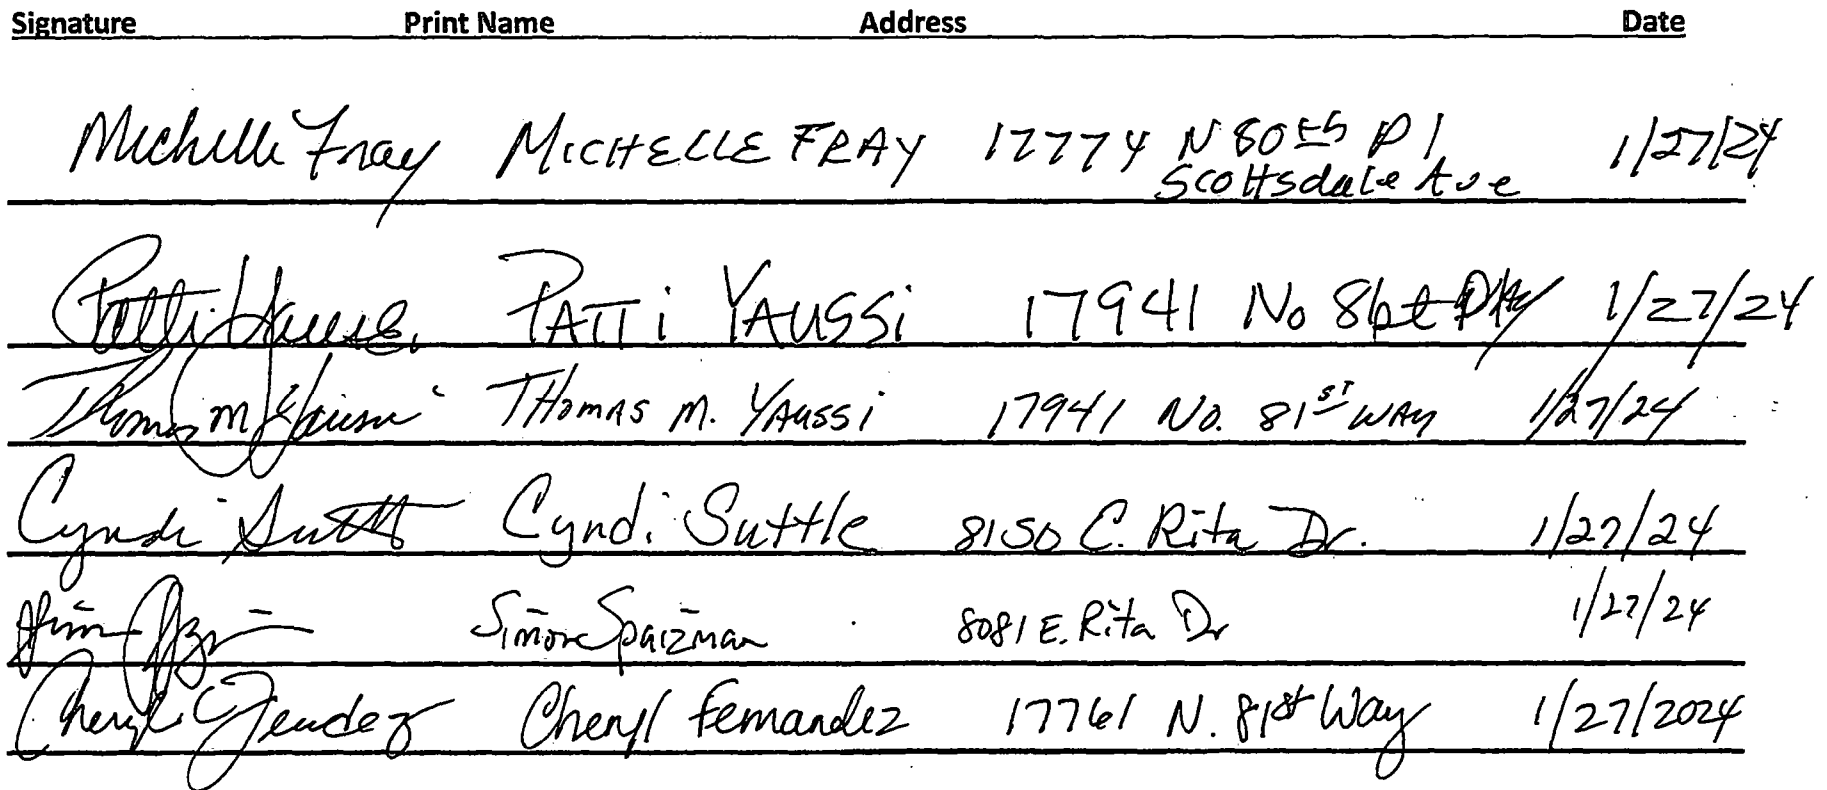 Signature Print Name Address Date
Michelle Fray MICHELLE FRAY 17774 N 80th Pl 1/27/24
Scottsdale Ave
Patti Yaussi PATTi YAUSSi 17941 No 1/27/24
Thomas M Yaussi THOMAS M. YAUSSi 17941 No. 81ST WAY 1/27/24
Cyndi Suttle Cyndi Suttle 8150 E. Rita Dr. 1/27/24
Simone Spaizman 8081 E. Rita Dr 1/27/24
Cheryl Cheryl Fernandez 17761 N. 81st Way 1/27/2024